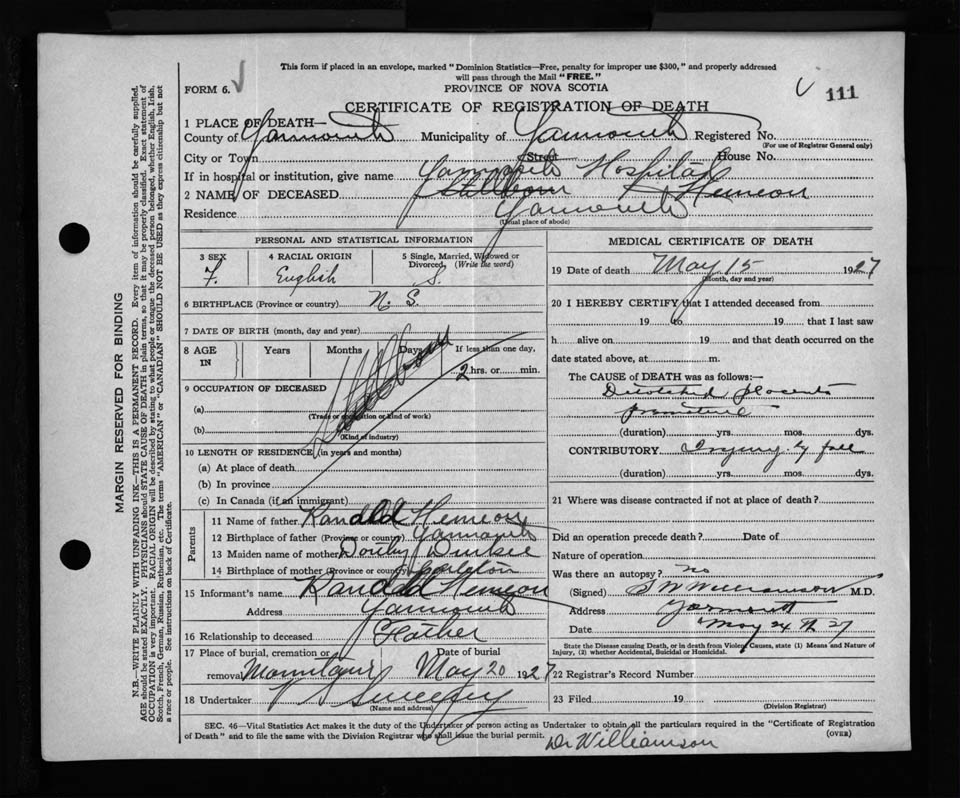 This form if placed in an envelope, marked "Dominion Statistics—Free, penalty for improper use $300," and properly addressed
will pass through the Mail "FREE."
FORM 6.
PROVINCE OF NOVA SCOTIA
111
CERTIFICATE OF REGISTRATION OF DEATH
1 PLACE OF DEATH—
County of Yarmouth Municipality of Yarmouth Registered No.
(For use of Registrar General only)
City or Town Street House No.
If in hospital or institution, give name Yarmouth Hospital
2 NAME OF DECEASED. Stillborn Hemeon
Residence Yarmouth
(Usual place of abode)
PERSONAL AND STATISTICAL INFORMATION
3 SEX 4 RACIAL ORIGIN 5 Single, Married, Widowed or
Divorced, (Write the word)
F. English S.
6 BIRTHPLACE (Province or country) N. S.
7 DATE OF BIRTH (month, day and year)
8 AGE IN Years Months Days If less than one day,
2 hrs. or min.
Stillborn
9 OCCUPATION OF DECEASED
(a)
(Trade or occupation or kind of work)
(b)
(Kind of industry)
10 LENGTH OF RESIDENCE (in years and months)
(a) At place of death
(b) In province
(c) In Canada (if an immigrant)
Parents
11 Name of father Randall Hemeon
12 Birthplace of father (Province or country) Yarmouth
13 Maiden name of mother Durkee
14 Birthplace of mother (Province or country) Carleton
15 Informant's name Randall Hemeon
Address Yarmouth
16 Relationship to deceased Father
17 Place of burial, cremation or Date of burial
removal May 20 1927
18 Undertaker V S Sweeny
(Name and address)
MEDICAL CERTIFICATE OF DEATH
19 Date of death May 15 1927
(Month, day and year)
20 I HEREBY CERTIFY that I attended deceased from
19 to 19 that I last saw
h alive on 19 and that death occurred on the
date stated above, at m.
The CAUSE of DEATH was as follows:—
Detatched placenta
premature
(duration) yrs. mos. dys.
CONTRIBUTORY Injury by fall
(duration) yrs. mos. dys.
21 Where was disease contracted if not at place of death?
Did an operation precede death? Date of
Nature of operation
Was there an autopsy? no
(Signed) S W Williamson M.D.
Address Yarmouth
Date May 24 th 27
State the Disease causing Death, or in death from Violent Causes, state (1) Means and Nature of
Injury, (2) whether Accidental, Suicidal or Homicidal.
22 Registrar's Record Number
23 Filed 19
(Division Registrar)
SEC. 46—Vital Statistics Act makes it the duty of the Undertaker or person acting as Undertaker to obtain all the particulars required in the "Certificate of Registration
of Death" and to file the same with the Division Registrar who shall issue the burial permit.
(OVER)
Dr Williamson
MARGIN RESERVED FOR BINDING
N.B.—WRITE PLAINLY WITH UNFADING INK—THIS IS A PERMANENT RECORD. Every item of information should be carefully supplied.
AGE should be stated EXACTLY. PHYSICIANS should STATE CAUSE OF DEATH in plain terms, so that it may be properly classified. Exact statement of
OCCUPATION is very important. RACIAL ORIGIN will be described by stating to what people or tongue the deceased person belonged, whether English, Irish,
Scotch, French, German, Russian, Ruthenian, etc. The terms "AMERICAN" or "CANADIAN" SHOULD NOT BE USED as they express citizenship but not
a race or people. See instructions on back of Certificate.